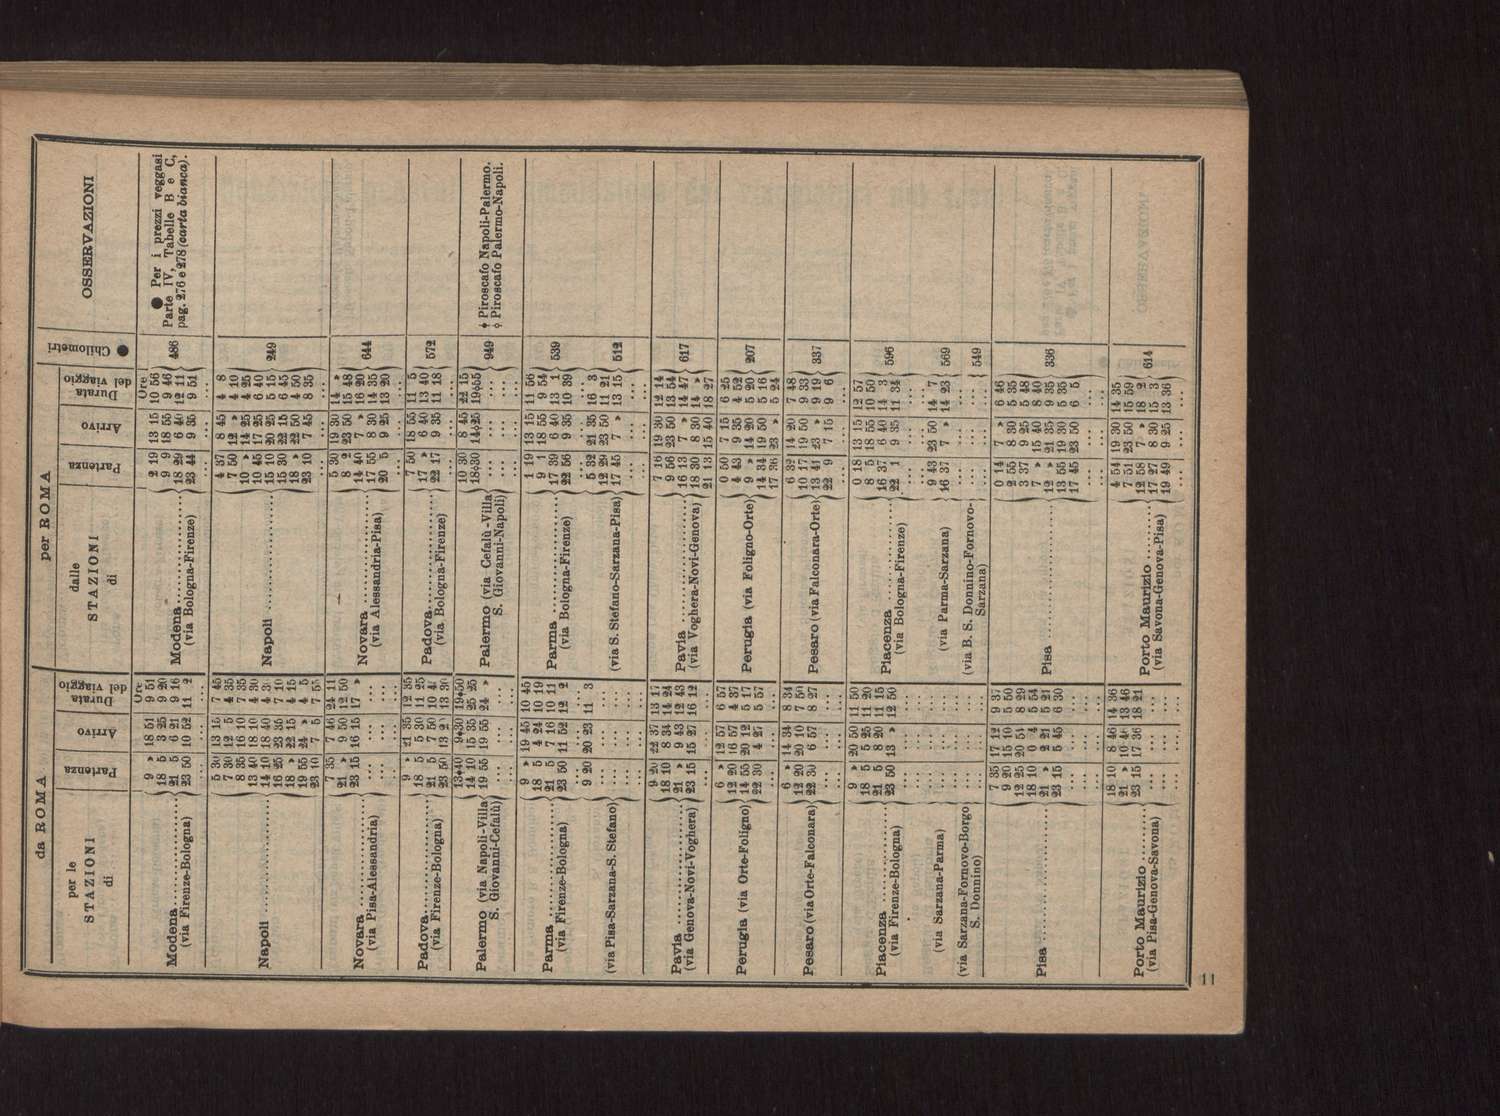 da ROMA
per ROMA
OSSERVAZIONI
per le STAZIONI di
Partenza
Arrivo
Durata del viaggio
dalle STAZIONI di
Partenza
Arrivo
Durata del viaggio
● Chilometri
Ore
Ore
Modena (via Firenze-Bologna)
9 » 18 51 9 51
18 5 3 25 9 20
21 5 6 21 9 16
23 50 10 52 11 2
Modena (via Bologna-Firenze)
2 19 13 15 10 56
9 9 18 55 9 46
18 29 6 40 12 11
23 44 9 35 9 51
486
● Per i prezzi veggasi
Parte IV, Tabelle B e C,
pag. 276 e 278 (carta bianca).
Napoli
5 30 13 15 7 45
7 30 12 5 4 35
8 35 16 10 7 35
13 40 18 10 4 30
14 10 18 40 4 30
16 25 23 35 7 10
18 » 22 15 4 15
19 55 24 » 4 5
23 10 7 5 7 55
Napoli
4 37 8 45 4 8
7 50 12 » 4 10
10 » 14 25 4 25
10 45 17 25 6 40
15 10 20 25 5 15
15 30 22 15 6 45
18 » 22 50 4 50
23 10 7 45 8 35
249
Novara (via Pisa-Alessandria)
7 35 7 46 24 11
21 » 9 50 12 50
23 15 16 15 17 »
Novara (via Alessandria-Pisa)
5 30 19 30 14 »
8 2 23 50 15 48
14 40 7 » 16 20
17 55 8 30 14 35
20 5 9 25 13 20
644
Padova (via Firenze-Bologna)
9 » 21 35 12 35
18 5 5 30 11 25
21 5 7 50 10 45
23 50 13 20 13 30
Padova (via Bologna-Firenze)
7 50 18 55 11 5
17 » 6 40 13 40
22 17 9 35 11 18
572
Palermo (via Napoli-Villa S. Giovanni-Cefalù)
13♦40 9♦30 19♦50
14 10 15 35 25 25
19 55 19 55 24 »
Palermo (via Cefalù-Villa S. Giovanni-Napoli)
10 30 8 45 22 15
18⬨30 14⬨25 19⬨55
949
♦ Piroscafo Napoli-Palermo.
⬨ Piroscafo Palermo-Napoli.
Parma (via Firenze-Bologna)
9 » 19 45 10 45
18 5 4 24 10 19
21 5 7 16 10 11
23 50 11 52 12 2
(via Pisa-Sarzana-S. Stefano)
9 20 20 23 11 3
Parma (via Bologna-Firenze)
1 19 13 15 11 56
9 1 18 55 9 54
17 39 6 40 13 1
22 56 9 35 10 39
539
(via S. Stefano-Sarzana-Pisa)
5 32 21 35 16 3
12 29 23 50 11 21
17 45 7 » 13 15
512
Pavia (via Genova-Novi-Voghera)
9 20 22 37 13 17
18 10 8 34 14 24
21 » 9 43 12 43
23 15 15 27 16 12
Pavia (via Voghera-Novi-Genova)
7 16 19 30 12 14
9 56 23 50 13 54
16 13 7 » 14 47
18 30 8 30 14 »
21 13 15 40 18 27
617
Perugia (via Orte-Foligno)
6 » 12 57 6 57
12 20 16 57 4 37
14 55 20 12 5 17
22 30 4 27 5 57
Perugia (via Foligno-Orte)
0 50 7 15 6 25
4 43 9 35 4 52
9 » 14 20 5 20
14 34 19 50 5 16
17 36 23 » 5 24
207
Pesaro (via Orte-Falconara)
6 » 14 34 8 34
12 20 20 10 7 50
22 30 6 57 8 27
Pesaro (via Falconara-Orte)
6 32 14 20 7 48
10 17 19 50 9 33
13 41 23 » 9 19
22 9 7 15 9 6
337
Piacenza (via Firenze-Bologna)
9 » 20 50 11 50
18 5 5 25 11 20
21 5 8 20 11 15
23 50 13 » 12 50
(via Sarzana-Parma)
(via Sarzana-Fornovo-Borgo S. Donnino)
Piacenza (via Bologna-Firenze)
0 18 13 15 12 57
8 5 18 55 10 50
16 37 6 40 14 3
22 1 9 35 11 34
596
(via Parma-Sarzana)
9 43 23 50 14 7
16 37 7 » 14 23
569
(via B. S. Donnino-Fornovo-Sarzana)
549
Pisa
7 35 17 12 9 37
9 20 15 10 5 50
12 25 20 54 8 29
18 10 0 4 5 54
21 » 2 21 5 21
23 15 5 45 6 30
Pisa
0 14 7 » 6 46
2 55 8 30 5 35
3 37 9 25 5 48
7 » 15 40 8 40
12 » 21 35 9 35
13 55 19 30 5 35
17 45 23 50 6 5
336
Porto Maurizio (via Pisa-Genova-Savona)
18 10 8 46 14 36
21 » 10 46 13 46
23 15 17 36 18 21
Porto Maurizio (via Savona-Genova-Pisa)
4 54 19 30 14 35
7 51 23 50 15 59
12 58 7 » 18 2
17 27 8 30 15 3
19 49 9 25 13 36
614
11